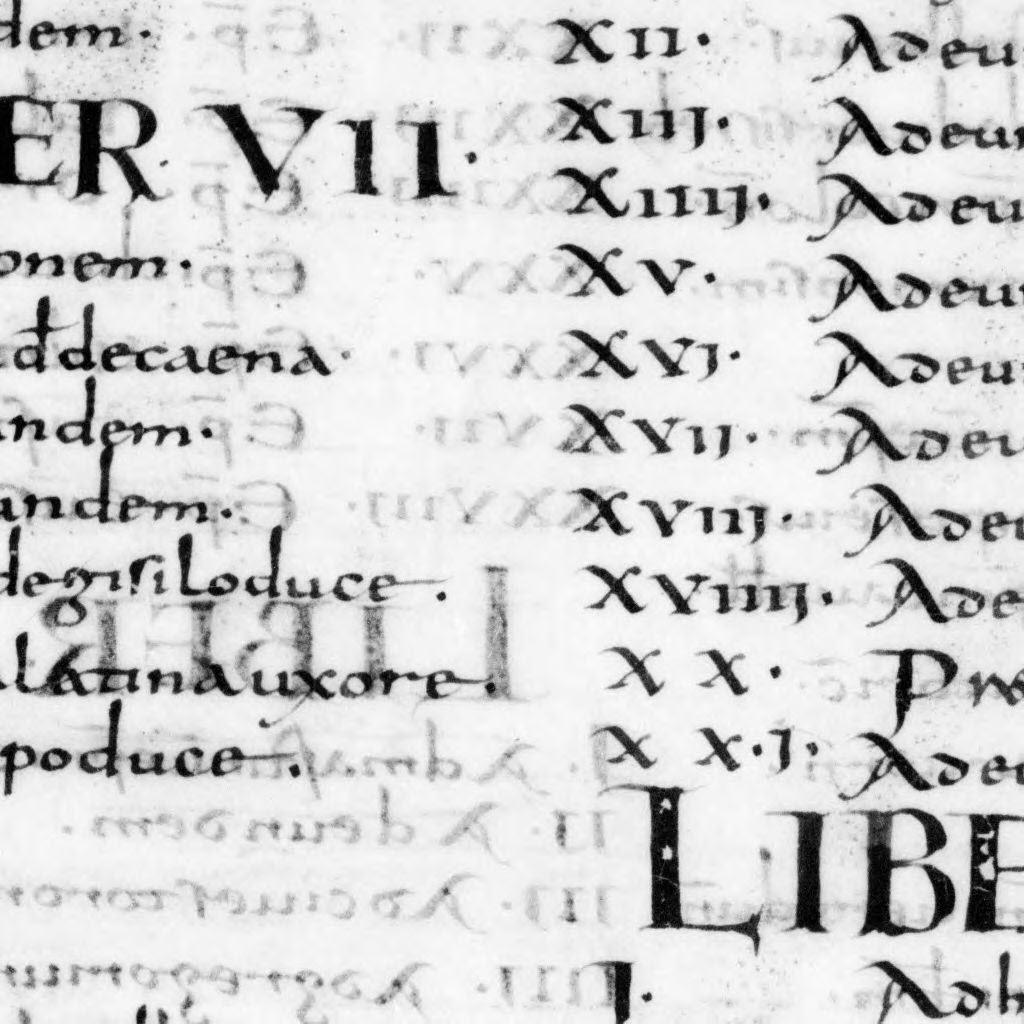 dem·
ER· VII·
onem·
decaena·
andem·
andem·
degisiloduce·
latinauxore·
poduce·
XII· Adeu
XIII· Adeun
XIIII· Adeu
XV· Adeun
XVI· Adeu
XVII· Adeu
XVIII· Adeu
XVIIII· Ade
XX· Pre
XXI· Adeu
LIBE
I· Adh